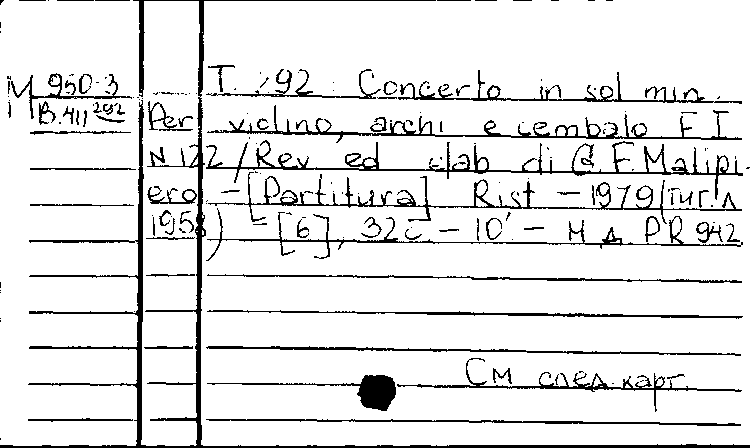 М 950-3 Т. 292. Concerto in sol min.
В.411 292 Per violino, archi e cembalo F. I
N 122 / Rev. ed elab. di G. F. Malipi-
ero. – [Partitura] Rist. – 1979 (тит. л.
1958) – [6], 32 с. – 10′ – Н. д. PR 942
См. след. карт.